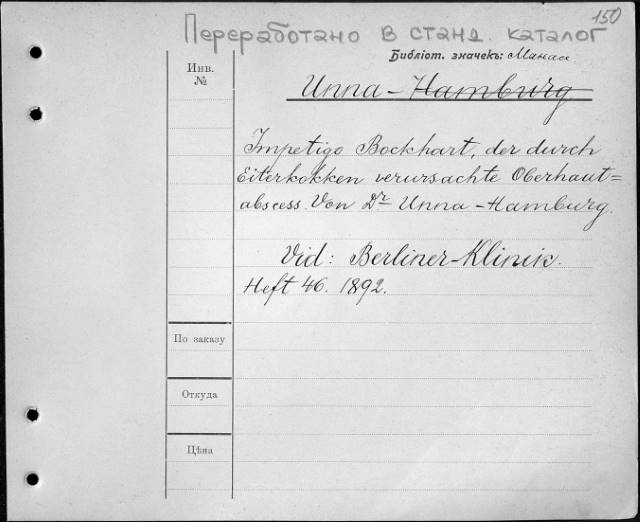 150
Переработано в станд. каталог
Библіот. значекъ:
Инв.
№
Unna-Hamburg
Impetigo Bockhart, der durch
Eiterkokken verursachte Oberhaut=
abscess. Von Dr Unna-Hamburg.
Vid: Berliner-Klinik.
Heft 46. 1892.
По заказу
Откуда
Цѣна